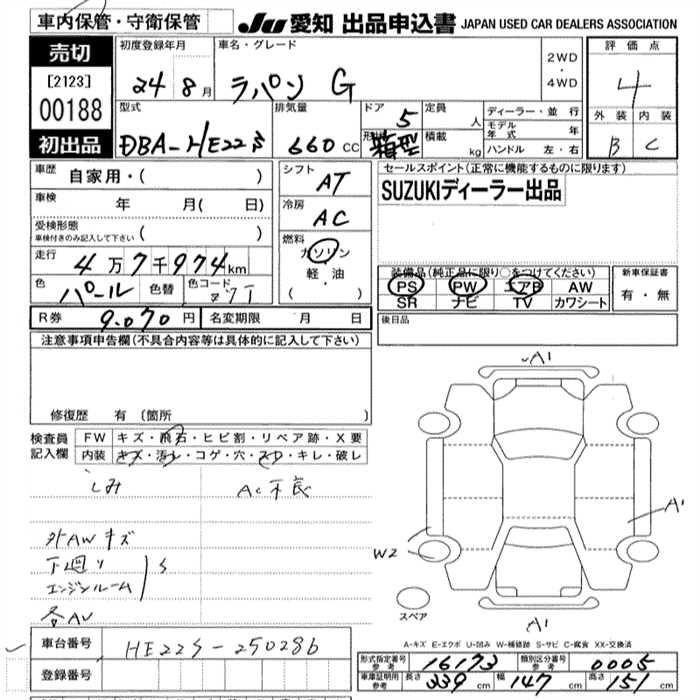 車内保管・守衛保管
JU 愛知 出品申込書 JAPAN USED CAR DEALERS ASSOCIATION
売切
[2123]
00188
初出品
初度登録年月
24 8月
車名・グレード
ラパン G
2WD
・
4WD
評価点
4
外装 内装
B C
型式
DBA-HE22S
排気量
660 CC
ドア 5
形状 箱型
定員 人
積載 kg
ディーラー・並行
モデル年式 年
ハンドル 左・右
車歴 自家用・( )
車検 年 月( 日)
受検形態
車検付きのみ記入して下さい ( )
走行 4万7千974km
色 パール 色替 色コード Z7T
シフト AT
冷房 AC
燃料
ガソリン
軽・油
( ・ )
セールスポイント(正常に機能するものに限ります)
SUZUKIディーラー出品
装備品(純正品に限り○をつけてください)
PS PW エアB AW
SR ナビ TV カワシート
新車保証書
有・無
R券 9.070円 名変期限 月 日
後日品
注意事項申告欄(不具合内容等は具体的に記入して下さい)
修復歴 有(箇所 )
検査員
記入欄
FW キズ・飛石・ヒビ割・リペア跡・X要
内装 キズ・汚れ・コゲ・穴・スレ・キレ・破レ
しみ AC不良
外AWキズ
下廻り
エンジンルーム
S
各AU
A1
A1
W2
A1
スペア
A-キズ E-エクボ U-凹み W-補修跡 S-サビ C-腐食 XX-交換済
車台番号 HE22S-250286
登録番号
形式指定番号 参考 16173
類別区分番号 参考 0005
車庫証明用 参考 長さ 339cm 幅 147cm 高さ 151cm